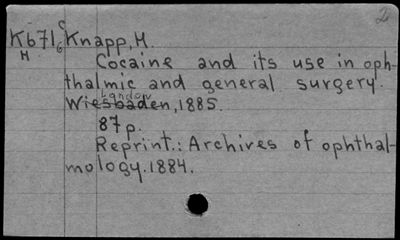 2
c
Kb71 6 Knapp, H.
H
Cocaine and its use in oph-
thalmic and general surgery.
London
Wiesbaden, 1885.
87 p.
Reprint.: Archives of ophthal-
mology. 1884.